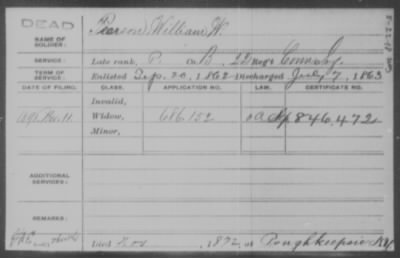 DEAD
NAME OF SOLDIER: Pearson, William W.
SERVICE: Late rank, P. Co. B, 22 Reg't Conn. Inf.
TERM OF SERVICE: Enlisted Sep. 20, 1862 Discharged July 7, 1863
DATE OF FILING. CLASS. APPLICATION NO. LAW. CERTIFICATE NO.
Invalid,
Widow, 686,152 846,472
Minor,
ADDITIONAL SERVICES:
REMARKS:
Died Nov , 1872, at Poughkeepsie NY